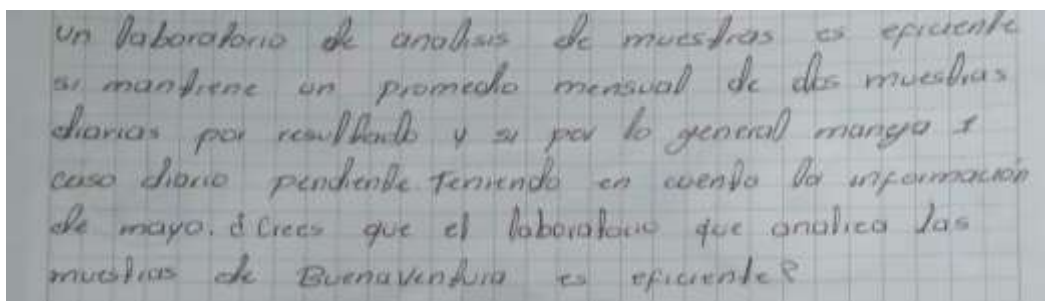 un laboratorio de analisis de muestras es eficiente
si mantiene un promedio mensual de dos muestras
diarias por resultado y si por lo general maneja 1
caso diario pendiente. Teniendo en cuenta la información
de mayo. ¿Crees que el laboratorio que analiza las
muestras de Buenaventura es eficiente?